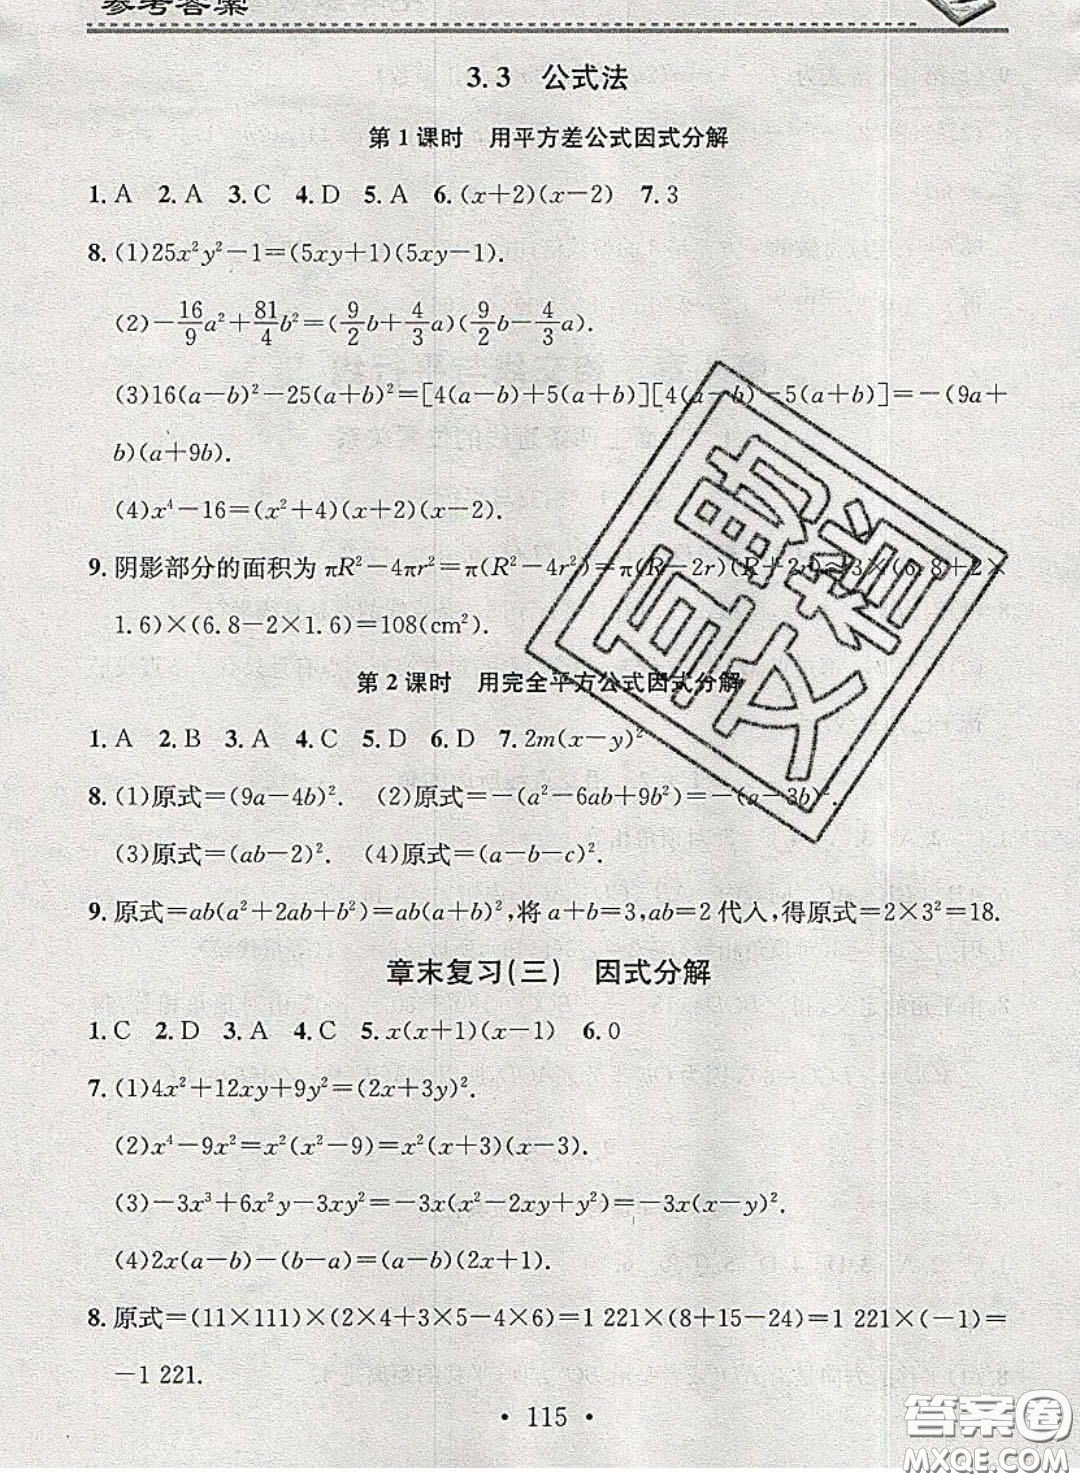 参考答案
3.3 公式法
第1课时 用平方差公式因式分解
1. A 2. A 3. C 4. D 5. A 6. (x+2)(x-2) 7. 3
8. (1)25x²y²-1=(5xy+1)(5xy-1).
(2)-16/9a²+81/4b²=(9/2b+4/3a)(9/2b-4/3a).
(3)16(a-b)²-25(a+b)²=[4(a-b)+5(a+b)][4(a-b)-5(a+b)]=-(9a+
b)(a+9b).
(4)x⁴-16=(x²+4)(x+2)(x-2).
9. 阴影部分的面积为 πR²-4πr²=π(R²-4r²)=π(R-2r)(R+2r)≈3×(6.8+2×
1.6)×(6.8-2×1.6)=108(cm²).
第2课时 用完全平方公式因式分解
1. A 2. B 3. A 4. C 5. D 6. D 7. 2m(x-y)²
8. (1)原式=(9a-4b)². (2)原式=-(a²-6ab+9b²)=-(a-3b)².
(3)原式=(ab-2)². (4)原式=(a-b-c)².
9. 原式=ab(a²+2ab+b²)=ab(a+b)²,将a+b=3,ab=2代入,得原式=2×3²=18.
章末复习(三) 因式分解
1. C 2. D 3. A 4. C 5. x(x+1)(x-1) 6. 0
7. (1)4x²+12xy+9y²=(2x+3y)².
(2)x⁴-9x²=x²(x²-9)=x²(x+3)(x-3).
(3)-3x³+6x²y-3xy²=-3x(x²-2xy+y²)=-3x(x-y)².
(4)2x(a-b)-(b-a)=(a-b)(2x+1).
8. 原式=(11×111)×(2×4+3×5-4×6)=1 221×(8+15-24)=1 221×(-1)=
-1 221.
• 115 •
答案圈
MXQE.COM